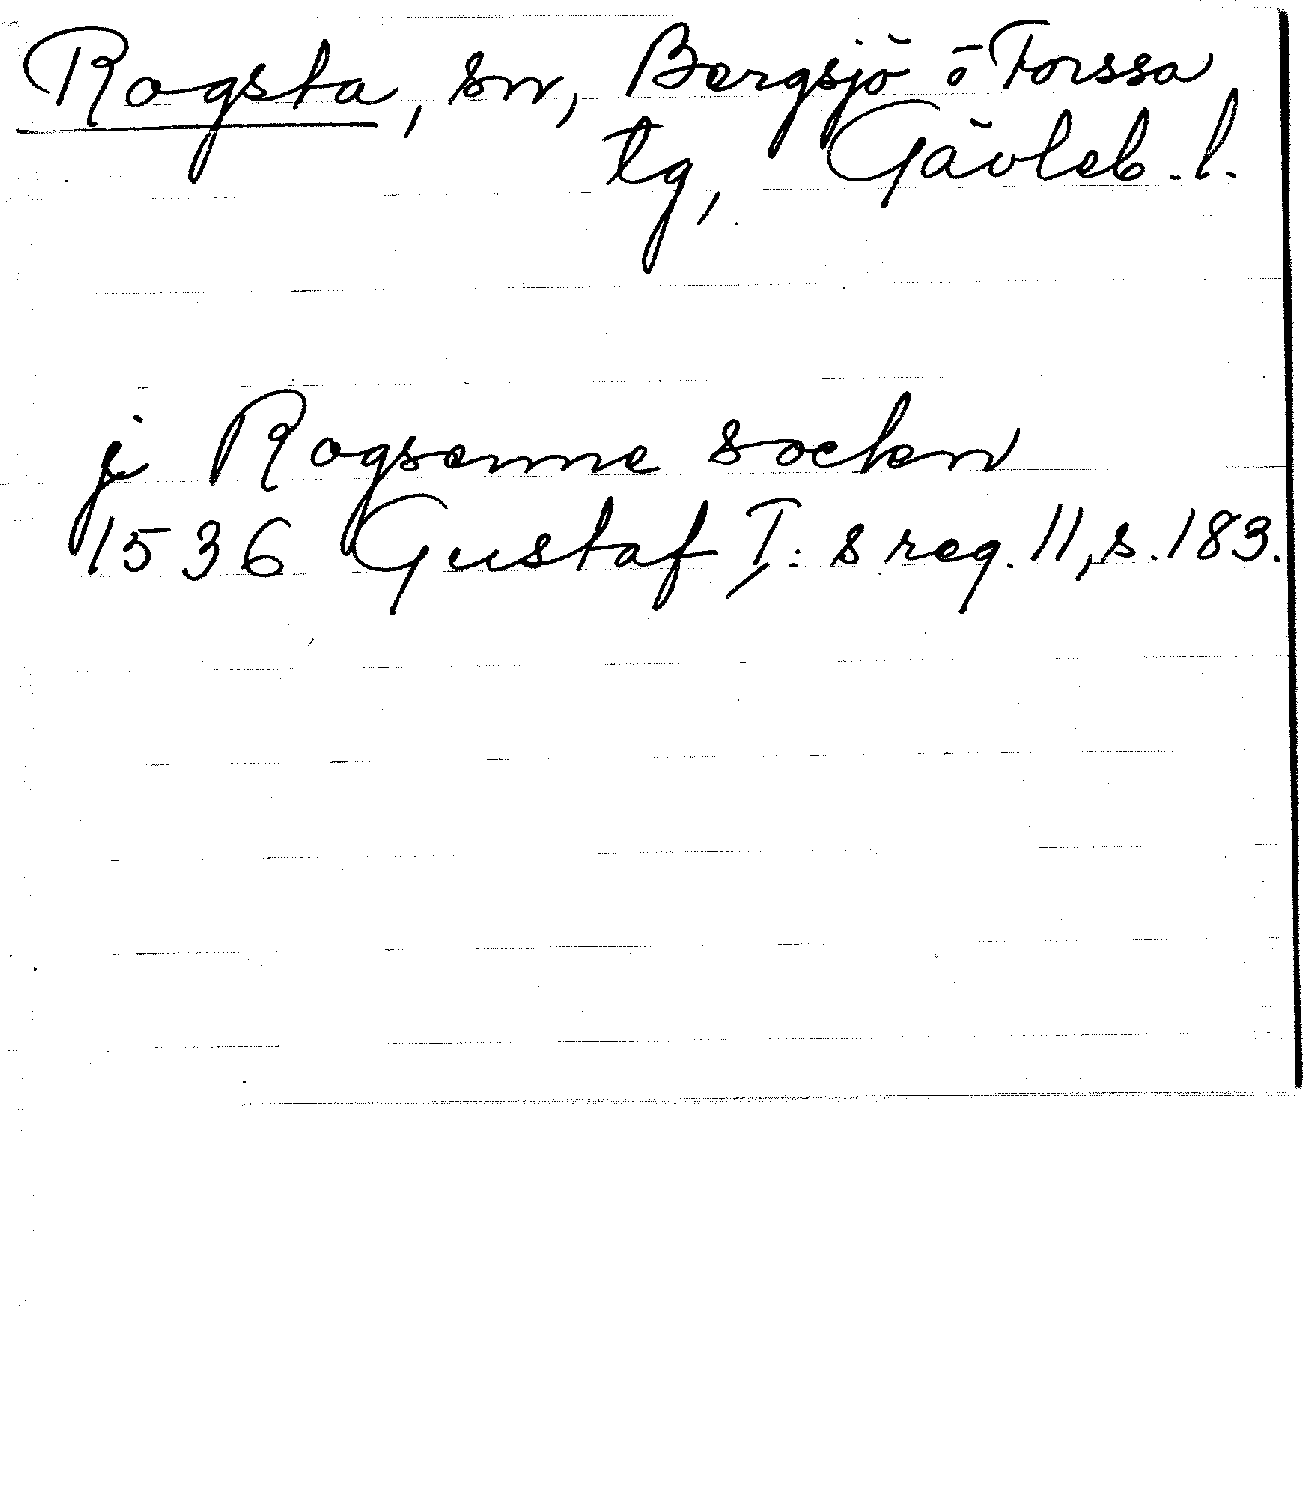 Rogsta, sn, Bergsjö o Forssa
tg, Gävleb. l.
j Rogsenne socken
1536 Gustaf I: s reg. 11, s. 183.